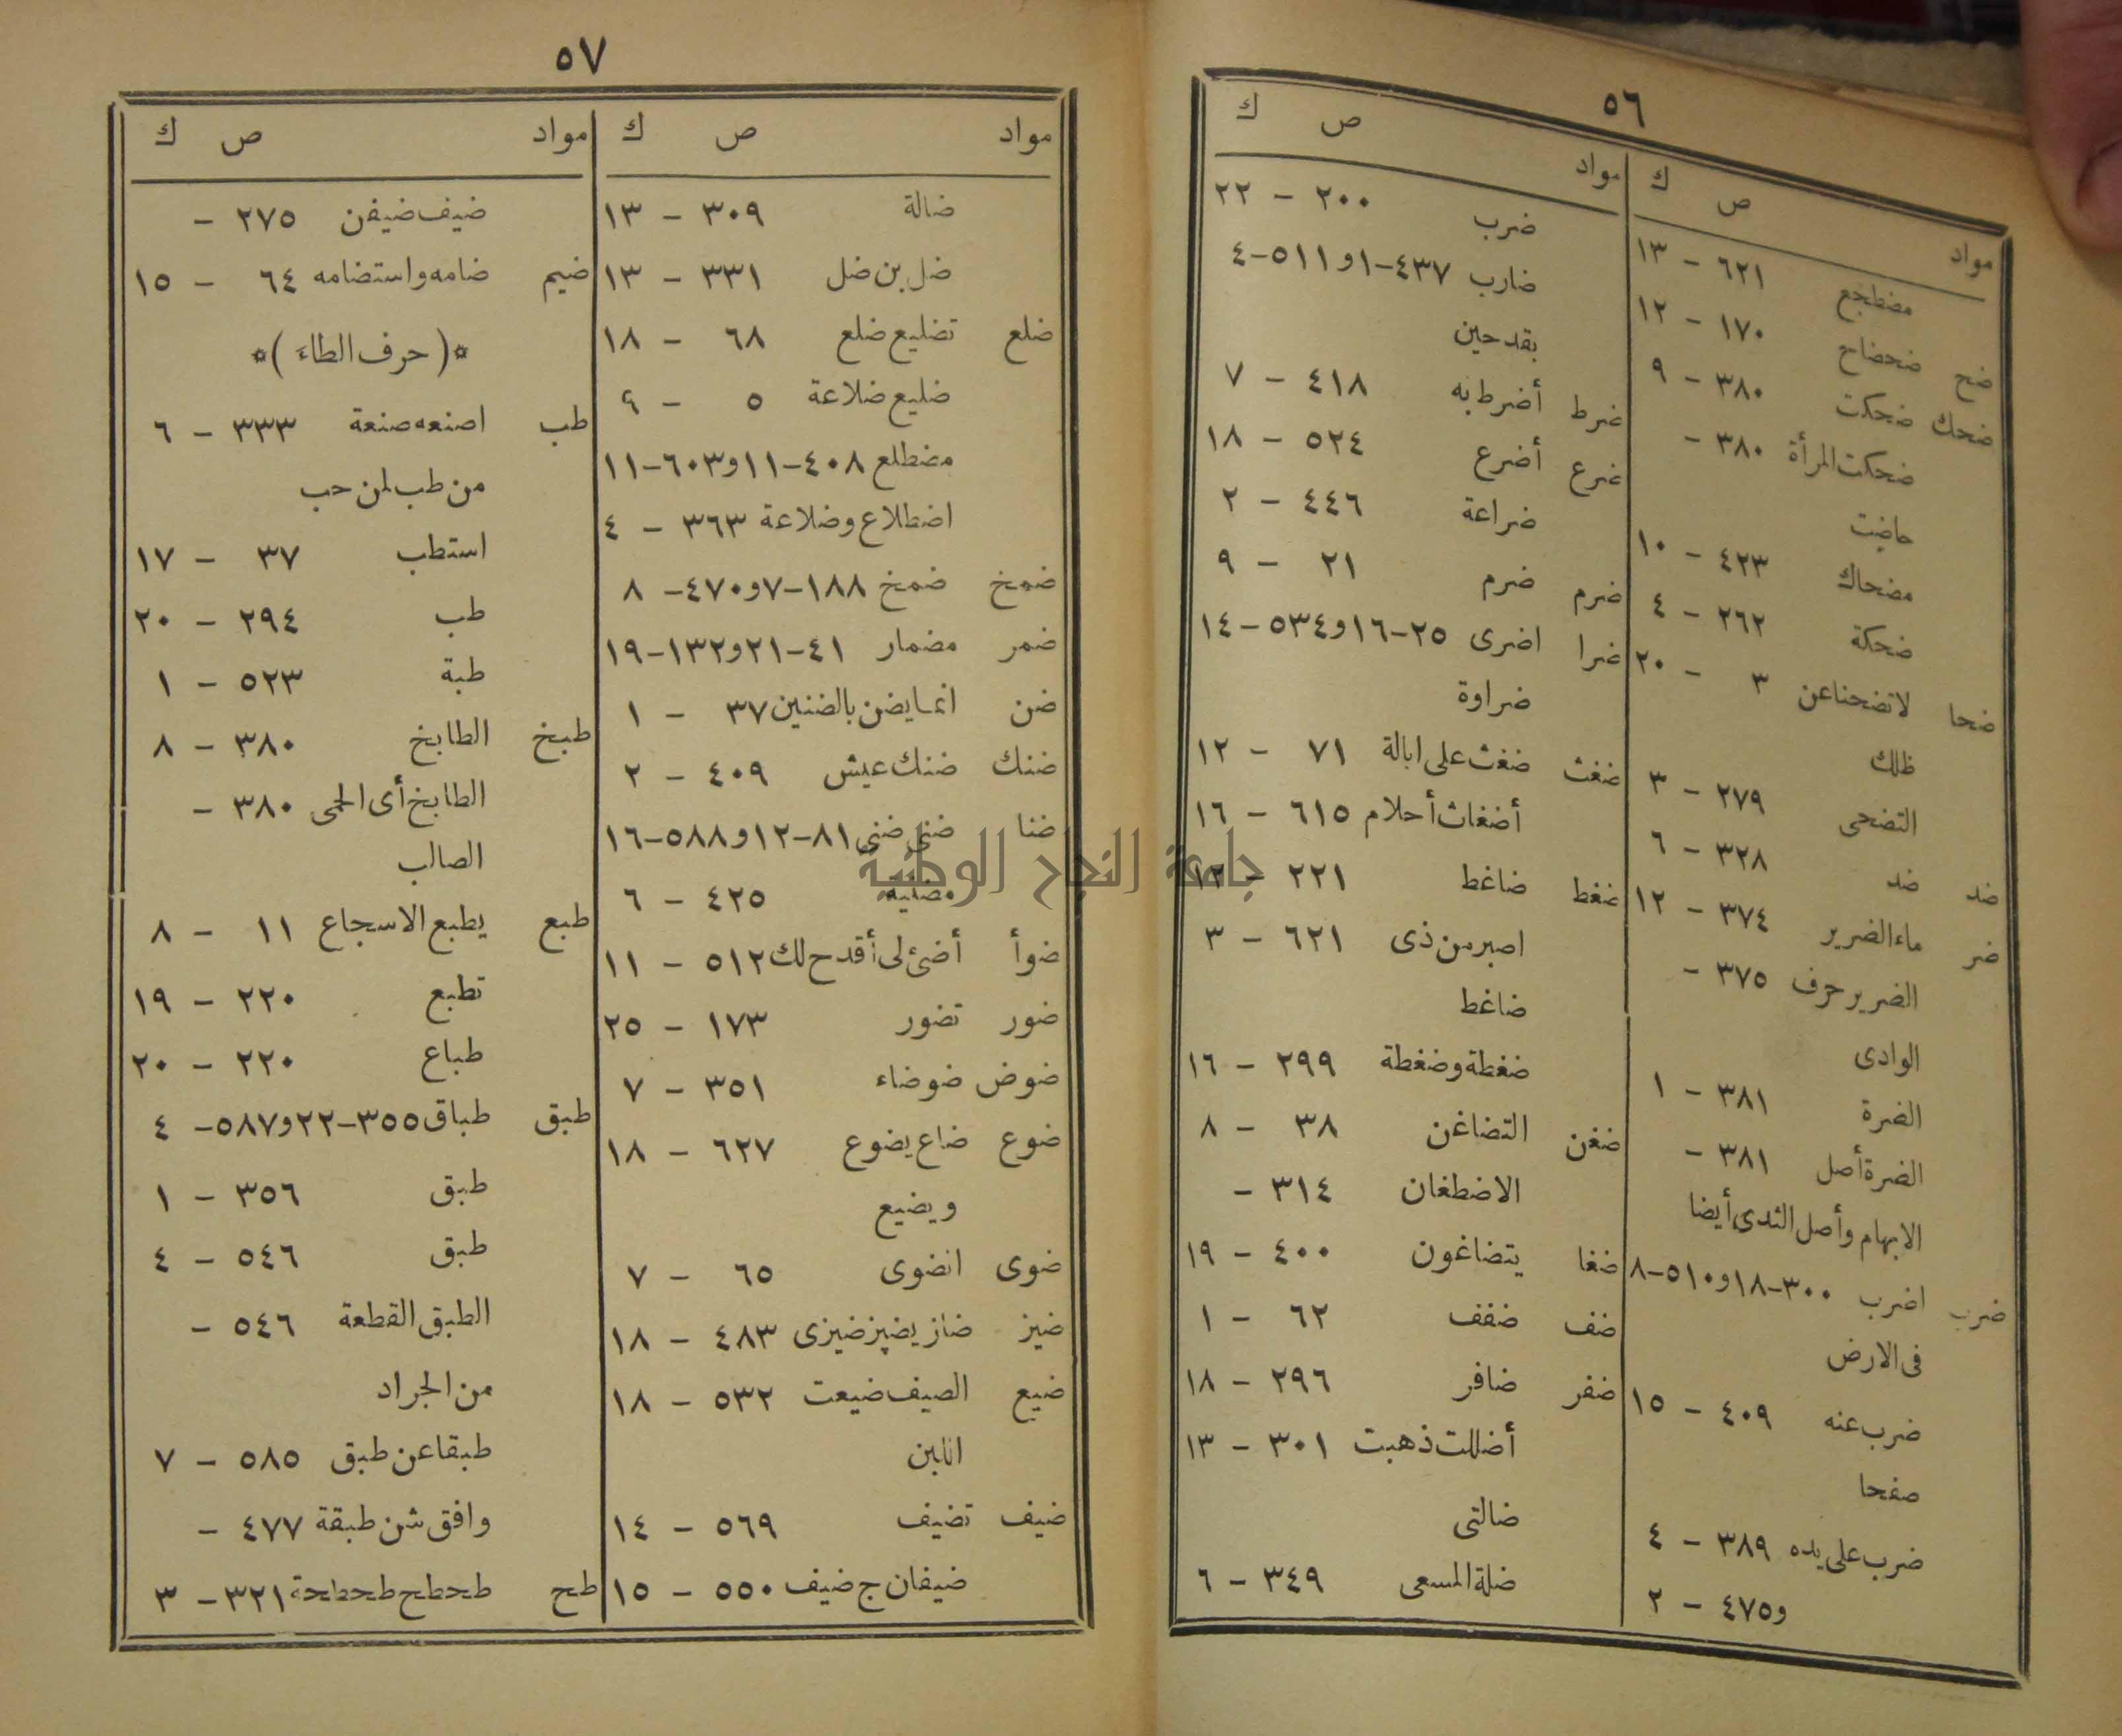 ٥٦
مواد ص ك
مضطجع ٦٢١ - ١٣
ضح ضحضاح ١٧٠ - ١٢
ضحك ضحكت ٣٨٠ - ٩
ضحكت المرأة ٣٨٠ -
حاضت
مضحاك ٤٢٣ - ١٠
ضحكة ٢٦٢ - ٤
ضحا لا تضحنا عن ٣ - ٢٠
ظلك
التضحى ٢٧٩ - ٣
ضد ضد ٣٢٨ - ٦
ضر ماء الضرير ٣٧٤ - ١٢
الضرير حرف ٣٧٥ -
الوادى
الضرة ٣٨١ - ١
الضرة أصل ٣٨١ -
الابهام وأصل الثدى أيضا
ضرب اضرب ٣٠٠-١٨ و٥١٠-٨
فى الارض
ضرب عنه ٤٠٩ - ١٥
صفحا
ضرب على يده ٣٨٩ - ٤
و٤٧٥ - ٢
مواد ص ك
ضرب ٢٠٠ - ٢٢
ضارب ٤٣٧-١ و٥١١-٤
بقدحين
ضرط أضرط به ٤١٨ - ٧
ضرع أضرع ٥٢٤ - ١٨
ضراعة ٤٤٦ - ٢
ضرم ضرم ٢١ - ٩
ضرا اضرى ٢٥-١٦ و٥٣٤-١٤
ضراوة
ضغث ضغث على ابالة ٧١ - ١٢
أضغاث أحلام ٦١٥ - ١٦
ضغط ضاغط ٢٢١ - ١٢
اصبر من ذى ٦٢١ - ٣
ضاغط
ضغطة وضغطة ٢٩٩ - ١٦
ضغن التضاغن ٣٨ - ٨
الاضطغان ٣١٤ -
ضغا يتضاغون ٤٠٠ - ١٩
ضف ضفف ٦٢ - ١
ضفر ضافر ٢٩٦ - ١٨
أضللت ذهبت ٣٠١ - ١٣
ضالتى
ضلة المسعى ٣٤٩ - ٦
٥٧
مواد ص ك
ضالة ٣٠٩ - ١٣
ضل بن ضل ٣٣١ - ١٣
ضلع تضليع ضلع ٦٨ - ١٨
ضليع ضلاعة ٥ - ٩
مضطلع ٤٠٨-١١ و٦٠٣-١١
اضطلاع وضلاعة ٣٦٣ - ٤
ضمخ ضمخ ١٨٨-٧ و٤٧٠- ٨
ضمر مضمار ٤١-٢١ و١٣٢-١٩
ضن انما يضن بالضنين ٣٧ - ١
ضنك ضنك عيش ٤٠٩ - ٢
ضنا ضنى ضنى ٨١-١٢ و٥٨٨-١٦
مضنية ٤٢٥ - ٦
ضوأ أضئ لى أقدح لك ٥١٢ - ١١
ضور تضور ١٧٣ - ٢٥
ضوض ضوضاء ٣٥١ - ٧
ضوع ضاع يضوع ٦٢٧ - ١٨
ويضيع
ضوى انضوى ٦٥ - ٧
ضيز ضاز يضيز ضيزى ٤٨٣ - ١٨
ضيع الصيف ضيعت ٥٣٢ - ١٨
اللبن
ضيف تضيف ٥٦٩ - ١٤
ضيفان ج ضيف ٥٥٠ - ١٥
مواد ص ك
ضيف ضيفن ٢٧٥ -
ضيم ضامه واستضامه ٦٤ - ١٥
*(حرف الطاء)*
طب اصنعه صنعة ٣٣٣ - ٦
من طب لمن حب
استطب ٣٧ - ١٧
طب ٢٩٤ - ٢٠
طبة ٥٢٣ - ١
طبخ الطابخ ٣٨٠ - ٨
الطابخ أى الحمى ٣٨٠ -
الصالب
طبع يطبع الاسجاع ١١ - ٨
تطبع ٢٢٠ - ١٩
طباع ٢٢٠ - ٢٠
طبق طباق ٣٥٥-٢٢ و٥٨٧- ٤
طبق ٣٥٦ - ١
طبق ٥٤٦ - ٤
الطبق القطعة ٥٤٦ -
من الجراد
طبقا عن طبق ٥٨٥ - ٧
وافق شن طبقة ٤٧٧ -
طح طحطح طحطحة ٣٢١ - ٣
جامعة النجاح الوطنية